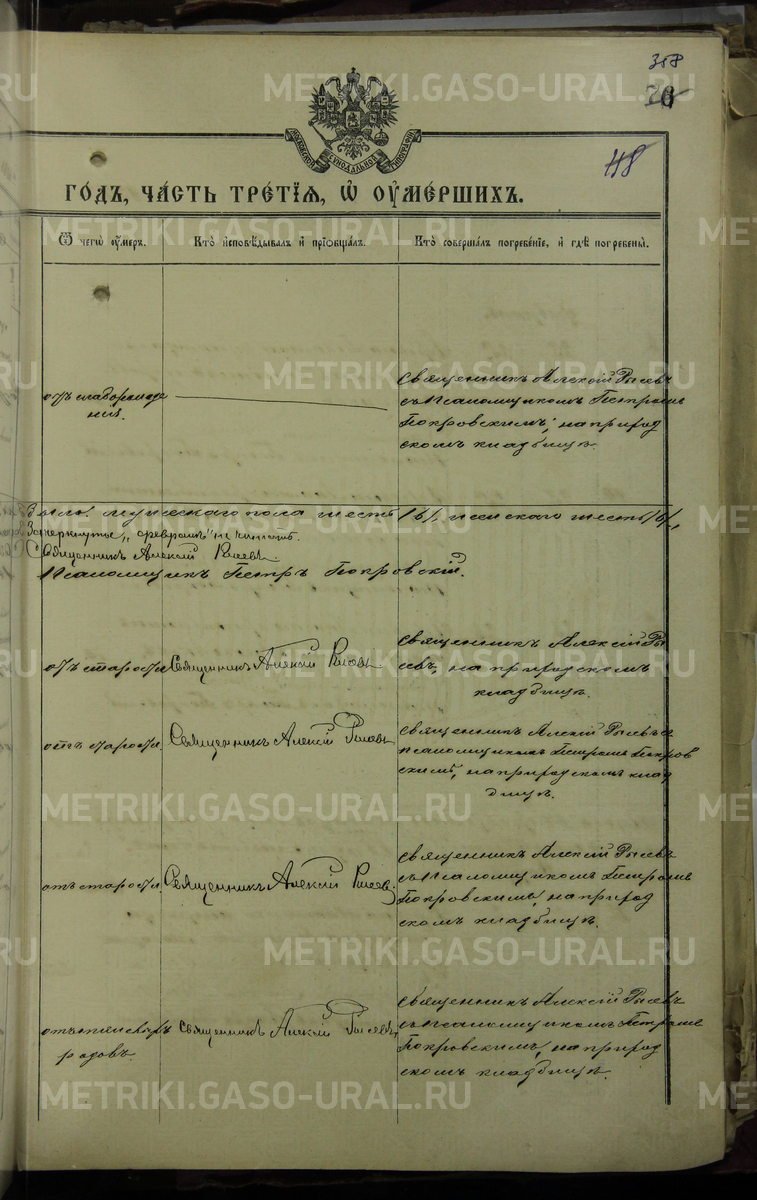 358
48
МОСКОВСКОЙ СѴНОДАЛЬНОЙ ТИПОГРАФІИ
ГОДЪ, ЧА́СТЬ ТРЕ́ТІЯ, Ѽ ОУ҆МЕ́РШИХЪ.
Ѿ чегѡ̀ оу҆́меръ.
Кто̀ и҆сповѣ́дывалъ и҆ приѻбща́лъ.
Кто̀ соверша́лъ погребе́нїе, и҆ гдѣ̀ погребены̀.
отъ слаборожде
нія.
Священникъ Алексій
съ псаломщикомъ Петромъ
Покровскимъ, на приход
скомъ кладбищѣ.
Было: мужескаго пола шесть /6/, женскаго шесть /6/,
Зачеркнутое „февраль“ не читать.
Священникъ Алексій
Псаломщикъ Петръ Покровскій.
отъ старости
Священникъ Алексій
Священникъ Алексій
на приходскомъ
кладбищѣ.
отъ старости
Священникъ Алексій
Священникъ Алексій
псаломщикомъ Петромъ Покров
скимъ, на приходскомъ клад
бищѣ.
отъ старости
Священникъ Алексій
Священникъ Алексій
съ псаломщикомъ Петромъ
Покровскимъ, на приход
скомъ кладбищѣ.
родовъ.
Священникъ Алексій
Священникъ Алексій
съ псаломщикомъ Петромъ
Покровскимъ, на приход
скомъ кладбищѣ.
METRIKI.GASO-URAL.RU